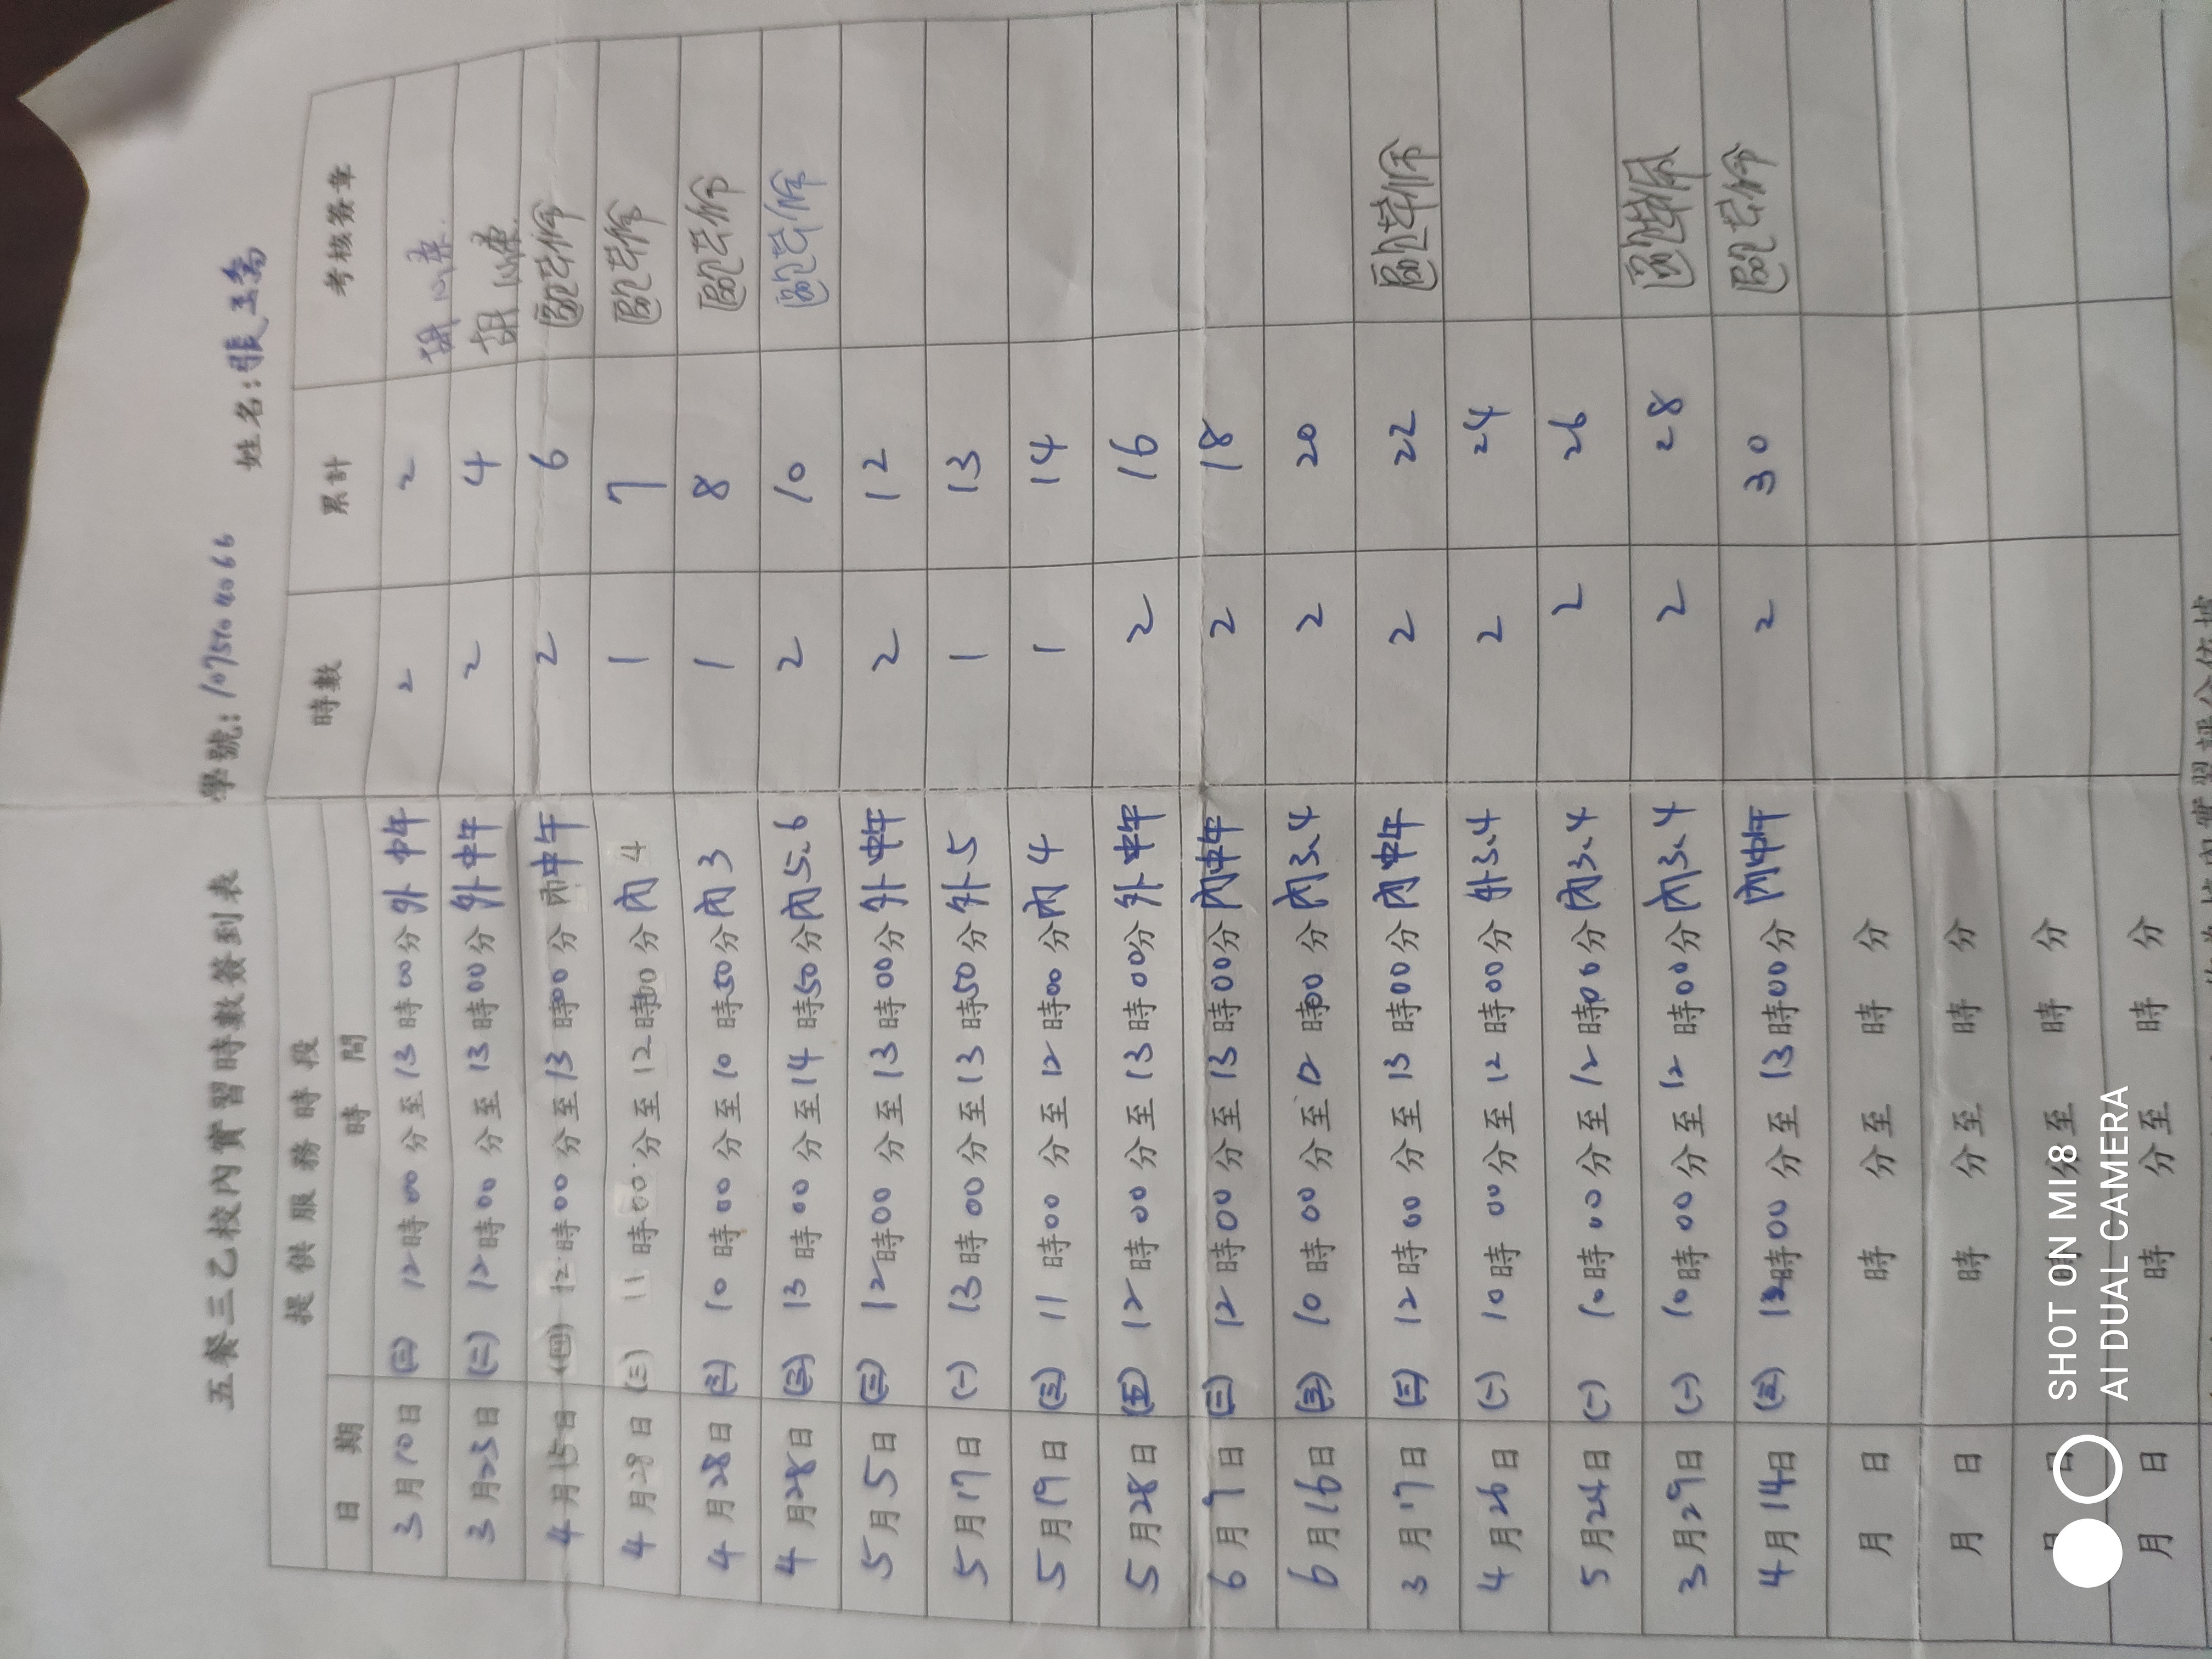 五餐三乙校內實習時數簽到表 學號:1075104066 姓名:張
提供服務時段 時數 累計 考核簽章
日期 時間
3月10日 (三) 12時00分至13時00分 外 中午 2 2 胡
3月23日 (二) 12時00分至13時00分 外 中午 2 4 胡
4月15日 (四) 12時00分至13時00分 內中午 2 6
4月28日 (三) 11時00分至12時00分 內4 1 7
4月28日 (三) 10時00分至10時50分 內3 1 8
4月28日 (三) 13時00分至14時50分 內5.6 2 10
5月5日 (三) 12時00分至13時00分 外中午 2 12
5月17日 (一) 13時00分至13時50分 外5 1 13
5月19日 (三) 11時00分至12時00分 內4 1 14
5月28日 (五) 12時00分至13時00分 外中午 2 16
6月 日 (三) 12時00分至13時00分 內中午 2 18
6月16日 (三) 10時00分至12時00分 內3.4 2 20
3月17日 (三) 12時00分至13時00分 內中午 2 22
4月26日 (一) 10時00分至12時00分 外3.4 2 24
5月24日 (一) 10時00分至12時00分 內3.4 2 26
3月29日 (一) 10時00分至12時00分 內3.4 2 28
4月14日 (三) 12時00分至13時00分 內中午 2 30
月 日 時 分至 時 分
月 日 時 分至 時 分
月 日 時 分至 時 分
月 日 時 分至 時 分
SHOT ON MI8
AI DUAL CAMERA